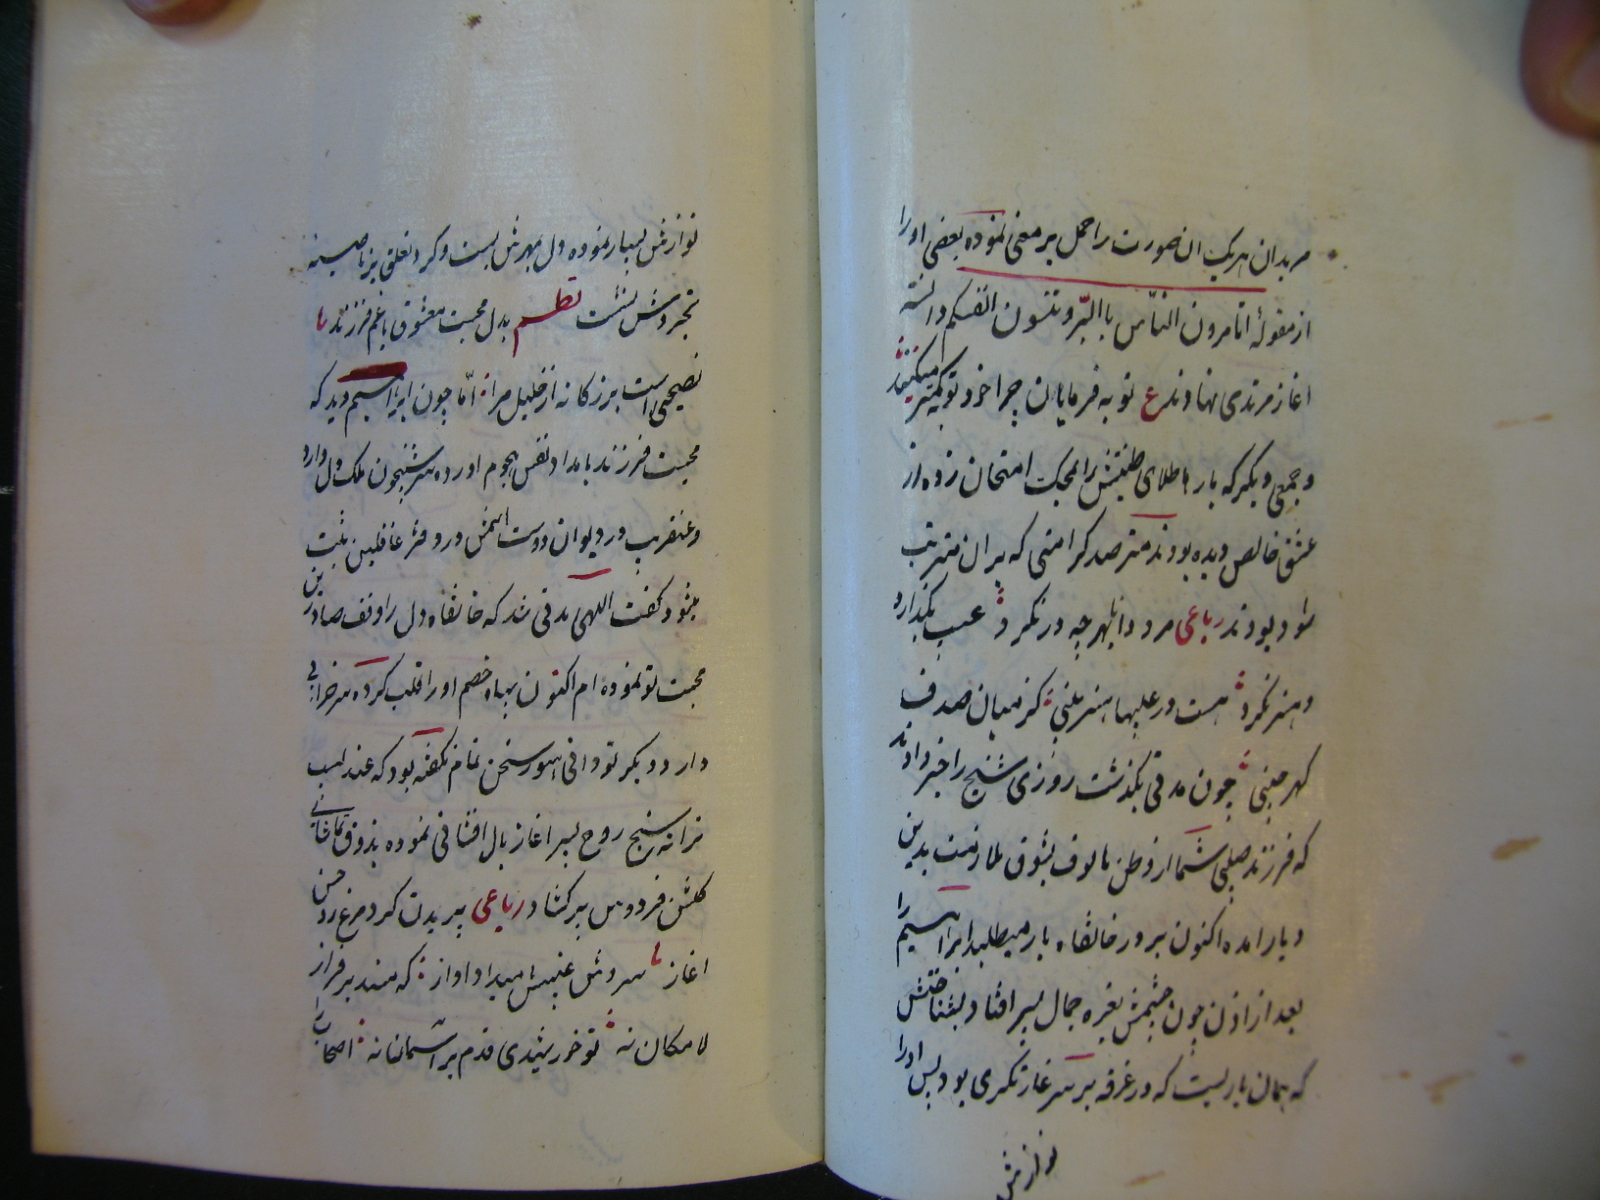 مریدان هریک ان صورت را حمل بر معنی نموده بعضی اورا
از مقولهٔ اتامرون النّاس باالبّر و تنسون انفسکم دانسته
اغاز مرتدی نهادند ع توبه فرمایان چرا خود توبه کمتر میکنند
و جمعی دیگر که بارها طلای طینتش را بمحک امتحان زده از
عشق خالص دیده بودند مترصد کرامتی که بران مترتب
شود بودند رباعی مرد دانا بهر چه در نگرد عیب بگذارد
و هنر نگرد هست در عیبها هنر بینی کز میان صدف
گهر چینی چون مدتی بگذشت روزی شیخ را خبر دادند
که فرزند صلبی شما از وطن مالوف بشوق ملازمت بدین
دیار امده اکنون بر در خانقاه بار میطلبد ابراهیم را
بعد از اذن چون چشمش بغره جمال پسر افتاد بشناختش
که همان یاریست که در غرفه بر سر غارتگری بود پس اورا
نوازش
نوازش بسیار نموده دل بمهرش بست و گرد تعلق بر ناصیه
تجردش نشست نظم بدل محبت معشوق باغم فرزند
نصیحتی است بزرگانه از خلیل مرا امّا چون ابراهیم دید که
محبت فرزند بامداد نفس هجوم اورده سر شبیخون ملک دل دارد
و عنقریب در دیوان دوست اسمش در دفتر غافلین ثبت
میشود گفت اللهی مدتی شد که خانقاه دل را وقف صادرین
محبت تو نموده ام اکنون سپاه خصم اورا قلب کرده سر خرابی
دارد دیگر تو دانی هنوز سخن تمام نگفته بود که عندلیب
ترانه سنج روح پسر اغاز بال افشانی نموده بذوق تماشای
گلشن فردوس پر کشاد رباعی پریدن کرد مرغ روحش
اغاز سروش غیبش میداد اواز که مسند بر فراز
لا مکان نه تو خورشیدی قدم بر اسمان نه اصحاب